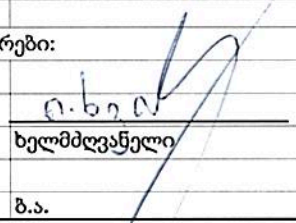 რები:
ხელმძღვანელი
ბ.ა.